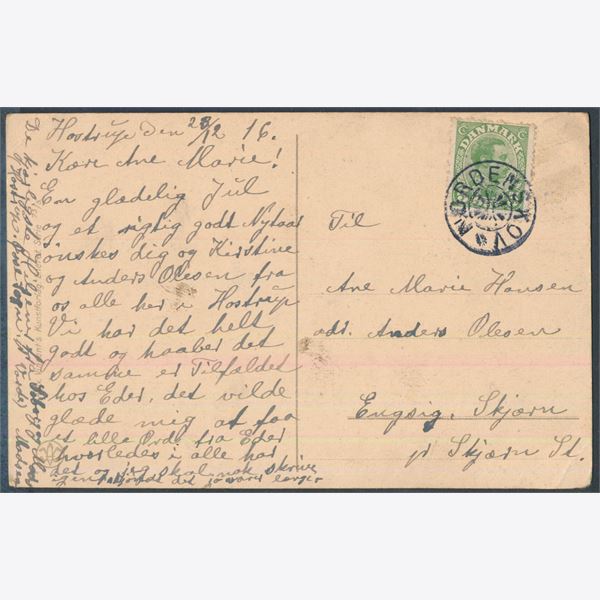 Hostrup den 28/12 16.
Kære Ane Marie!
En glædelig Jul
og et rigtig godt Nytaar
ønskes dig og Kirstine
og Anders Olesen fra
os alle her i Hostrup
Vi har det helt
godt og haaber det
samme er Tilfældet
hos Eder, det vilde
glæde mig at faa
et lille Ord fra Eder
hvorledes i alle har
det og jeg skal nok skrive
igen det
De kjærligste Hilsener
Hostrup
DANMARK
NORDENSKOV
Til
Ane Marie Hansen
adr. Anders Olesen
Engsig, Skjærn
pr Skjærn St.